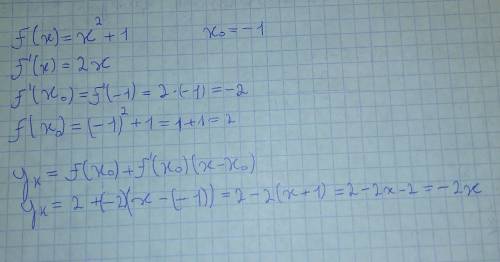 f(x) = x² + 1 x₀ = -1
f'(x) = 2x
f'(x₀) = f'(-1) = 2·(-1) = -2
f(x₀) = (-1)² + 1 = 1 + 1 = 2
yₖ = f(x₀) + f'(x₀)(x - x₀)
yₖ = 2 + (-2)(x - (-1)) = 2 - 2(x + 1) = 2 - 2x - 2 = -2x